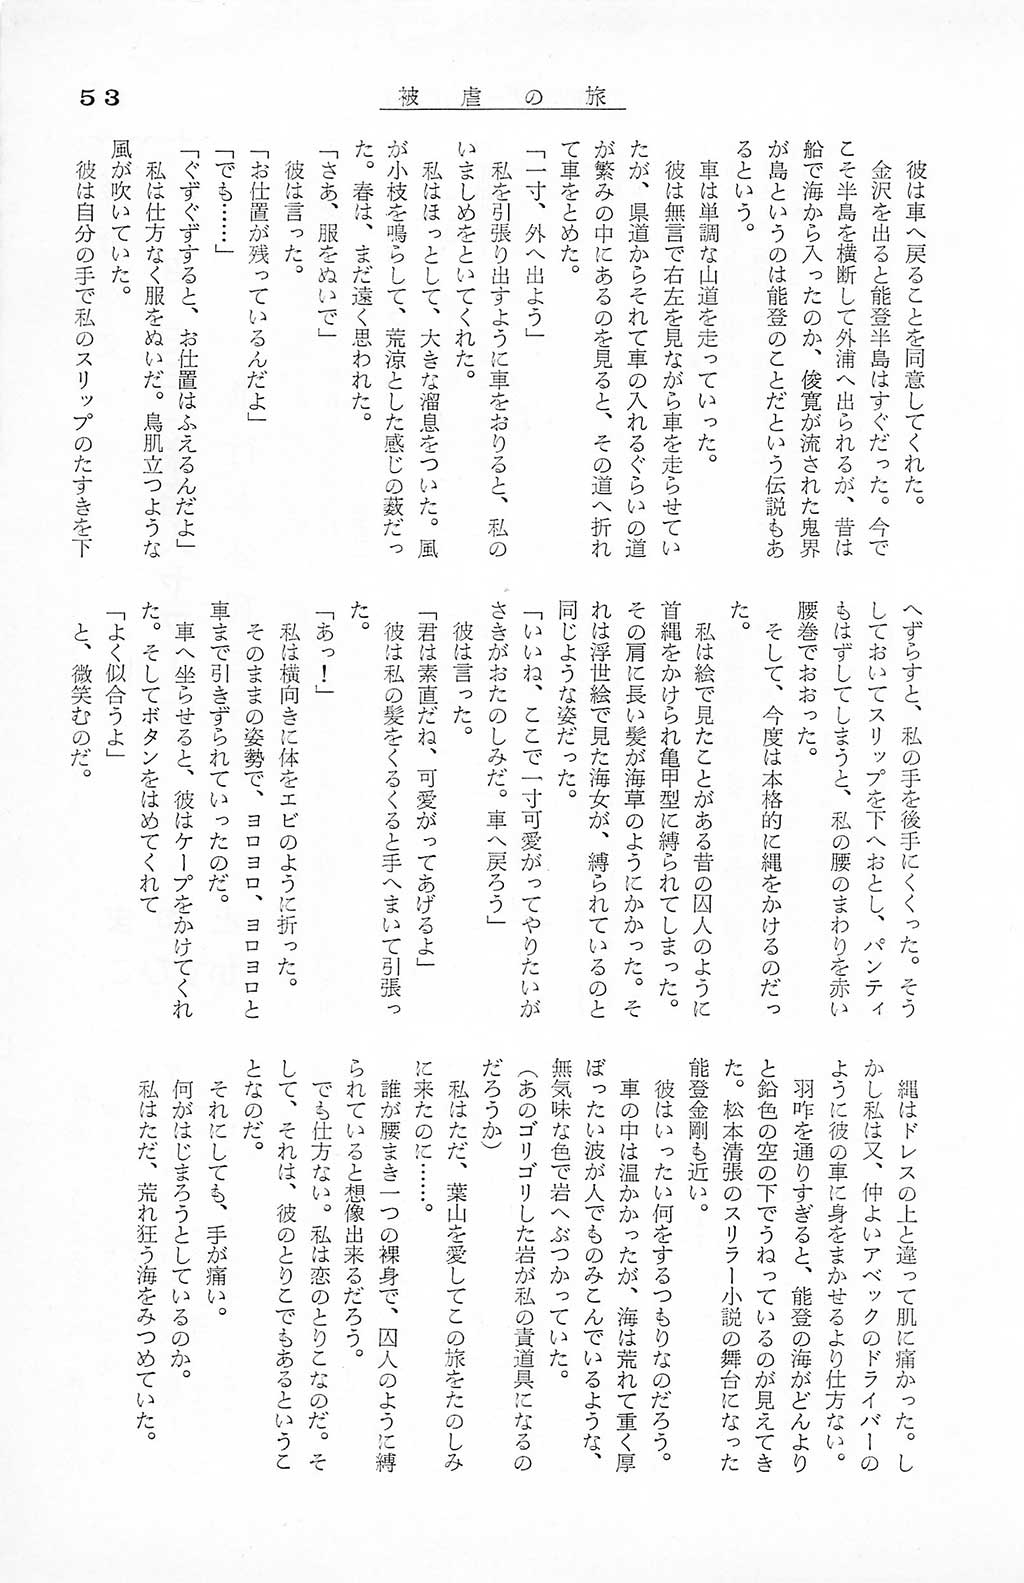 53
被虐の旅
彼は車へ戻ることを同意してくれた。
金沢を出ると能登半島はすぐだった。今で
こそ半島を横断して外浦へ出られるが、昔は
船で海から入ったのか、俊寛が流された鬼界
が島というのは能登のことだという伝説もあ
るという。
車は単調な山道を走っていった。
彼は無言で右左を見ながら車を走らせてい
たが、県道からそれて車の入れるぐらいの道
が繁みの中にあるのを見ると、その道へ折れ
て車をとめた。
「一寸、外へ出よう」
私を引張り出すように車をおりると、私の
いましめをといてくれた。
私はほっとして、大きな溜息をついた。風
が小枝を鳴らして、荒涼とした感じの薮だっ
た。春は、まだ遠く思われた。
「さあ、服をぬいで」
彼は言った。
「お仕置が残っているんだよ」
「でも……」
「ぐずぐずすると、お仕置はふえるんだよ」
私は仕方なく服をぬいだ。鳥肌立つような
風が吹いていた。
彼は自分の手で私のスリップのたすきを下
へずらすと、私の手を後手にくくった。そう
しておいてスリップを下へおとし、パンティ
もはずしてしまうと、私の腰のまわりを赤い
腰巻でおおった。
そして、今度は本格的に縄をかけるのだっ
た。
私は絵で見たことがある昔の囚人のように
首縄をかけられ亀甲型に縛られてしまった。
その肩に長い髪が海草のようにかかった。そ
れは浮世絵で見た海女が、縛られているのと
同じような姿だった。
「いいね、ここで一寸可愛がってやりたいが
さきがおたのしみだ。車へ戻ろう」
彼は言った。
「君は素直だね、可愛がってあげるよ」
彼は私の髪をくるくると手へまいて引張っ
た。
「あっ！」
私は横向きに体をエビのように折った。
そのままの姿勢で、ヨロヨロ、ヨロヨロと
車まで引きずられていったのだ。
車へ坐らせると、彼はケープをかけてくれ
た。そしてボタンをはめてくれて
「よく似合うよ」
と、微笑むのだ。
縄はドレスの上と違って肌に痛かった。し
かし私は又、仲よいアベックのドライバーの
ように彼の車に身をまかせるより仕方ない。
羽咋を通りすぎると、能登の海がどんより
と鉛色の空の下でうねっているのが見えてき
た。松本清張のスリラー小説の舞台になった
能登金剛も近い。
彼はいったい何をするつもりなのだろう。
車の中は温かかったが、海は荒れて重く厚
ぼったい波が人でものみこんでいるような、
無気味な色で岩へぶつかっていた。
（あのゴリゴリした岩が私の責道具になるの
だろうか）
私はただ、葉山を愛してこの旅をたのしみ
に来たのに……。
誰が腰まき一つの裸身で、囚人のように縛
られていると想像出来るだろう。
でも仕方ない。私は恋のとりこなのだ。そ
して、それは、彼のとりこでもあるというこ
となのだ。
それにしても、手が痛い。
何がはじまろうとしているのか。
私はただ、荒れ狂う海をみつめていた。